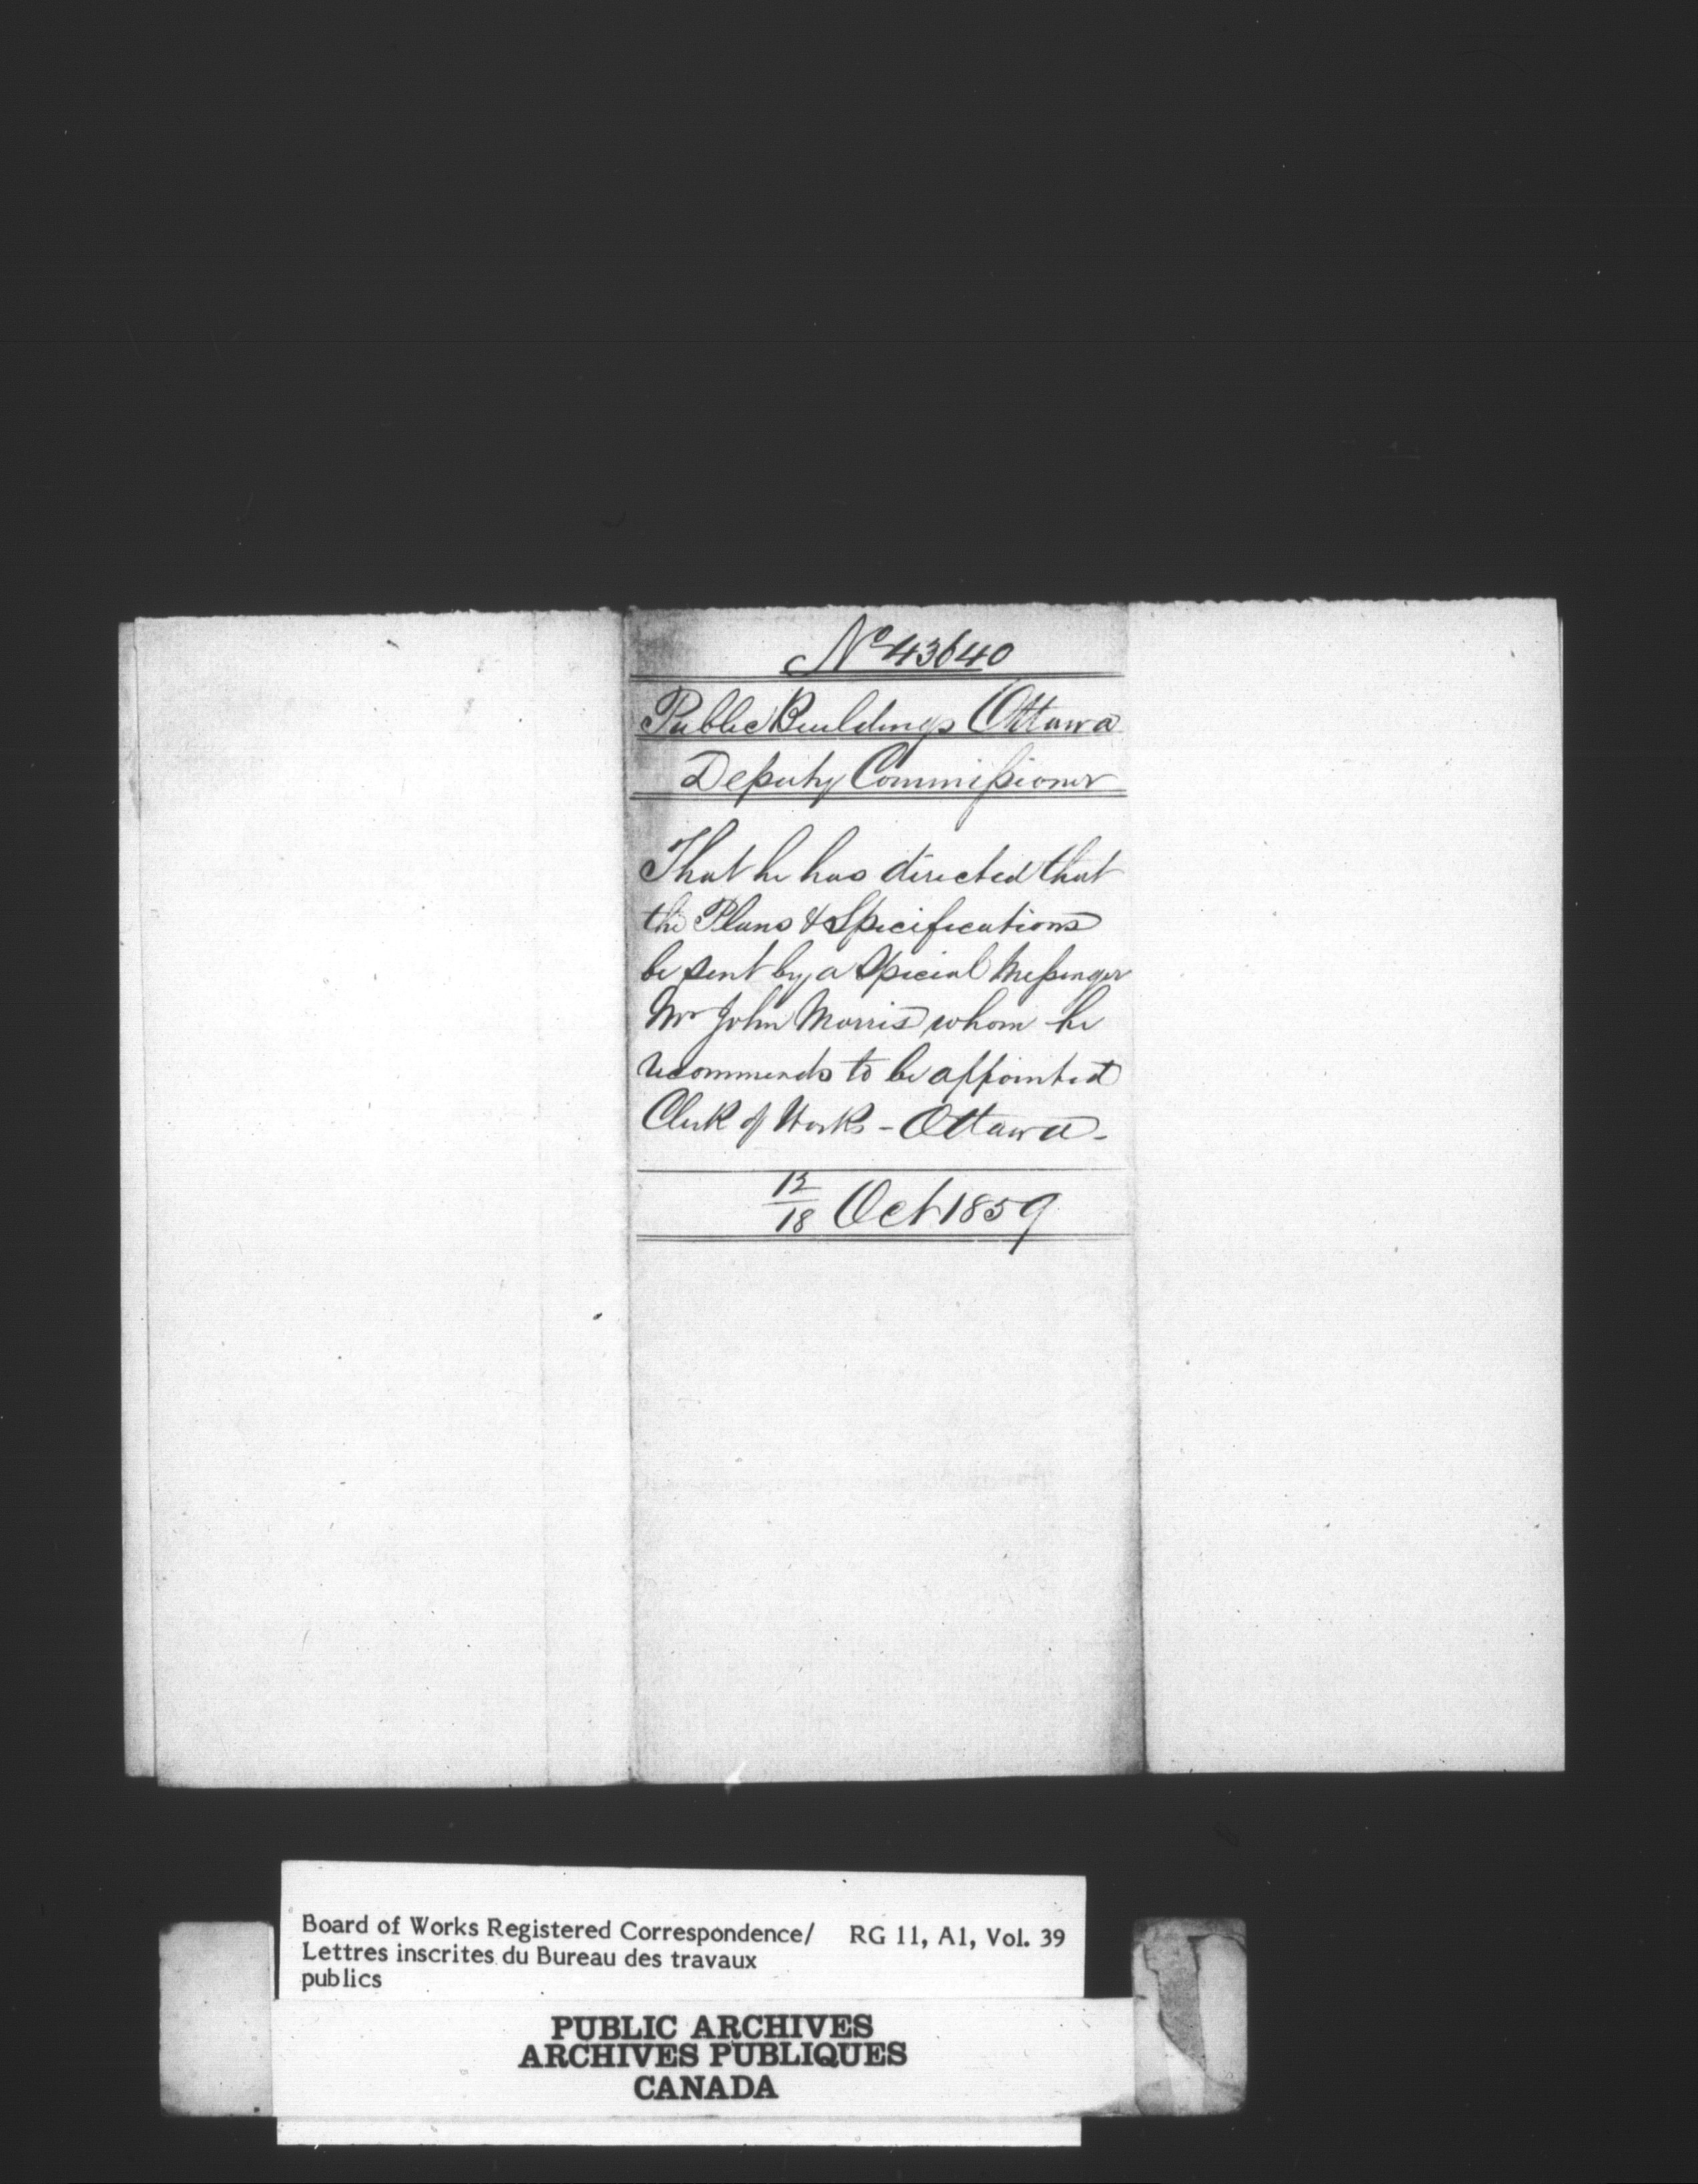 No 43640
Public Buildings Ottawa
Deputy Commissioner
That he has directed that
the Plans & Specifications
be sent by a Special Messenger
Mr John Morris whom he
recommends to be appointed
Clerk of Works - Ottawa -
12/18 Oct 1859
Board of Works Registered Correspondence/ RG 11, A1, Vol. 39
Lettres inscrites du Bureau des travaux
publics
PUBLIC ARCHIVES
ARCHIVES PUBLIQUES
CANADA